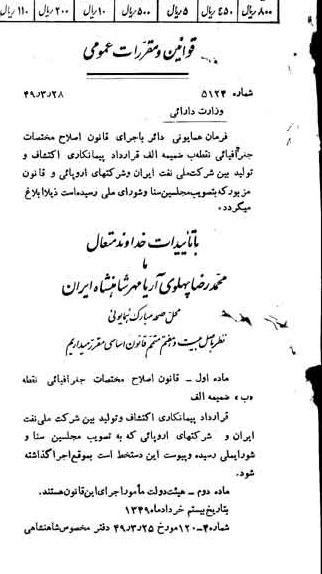 ۸۰۰ ریال ۴۵۰ ریال ۵ ریال ۵۰۰ ریال ۱۰ ریال ۲۰۰ ریال ۱۱۰ ریال
قوانین و مقررات عمومی
شماره ۵۱۲۴ ۴۹/۳/۲۸
وزارت دارائی
فرمان همایونی دائر باجرای قانون اصلاح مختصات
جغرافیائی نقطه‌ب ضمیمه الف قرارداد پیمانکاری اکتشاف و
تولید بین شرکت‌ملی نفت ایران وشرکتهای اروپائی و قانون
مزبور که بتصویب مجلسین‌سنا و شورای ملی رسیده است ذیلا ابلاغ
میگردد.
با تائیدات خداوند متعال
ما
محمدرضا پهلوی آریامهر شاهنشاه ایران
محل صحه مبارک همایونی
نظر باصل بیست و هفتم متمم قانون اساسی مقرر میداریم
ماده اول ـ قانون اصلاح مختصات جغرافیائی نقطه
«ب» ضمیمه الف
قرارداد پیمانکاری اکتشاف وتولید بین شرکت ملی‌نفت
ایران و شرکتهای اروپائی که به تصویب مجلسین سنا و
شورایملی رسیده وپیوست این دستخط است بموقع‌اجرا گذاشته
شود.
ماده دوم ـ هیئت‌دولت مأمور اجرای این‌قانون هستند.
بتاریخ بیستم خرداد ماه ۱۳۴۹
شماره ۴ـ۱۲۰ مورخ ۴۹/۳/۲۵ دفتر مخصوص شاهنشاهی